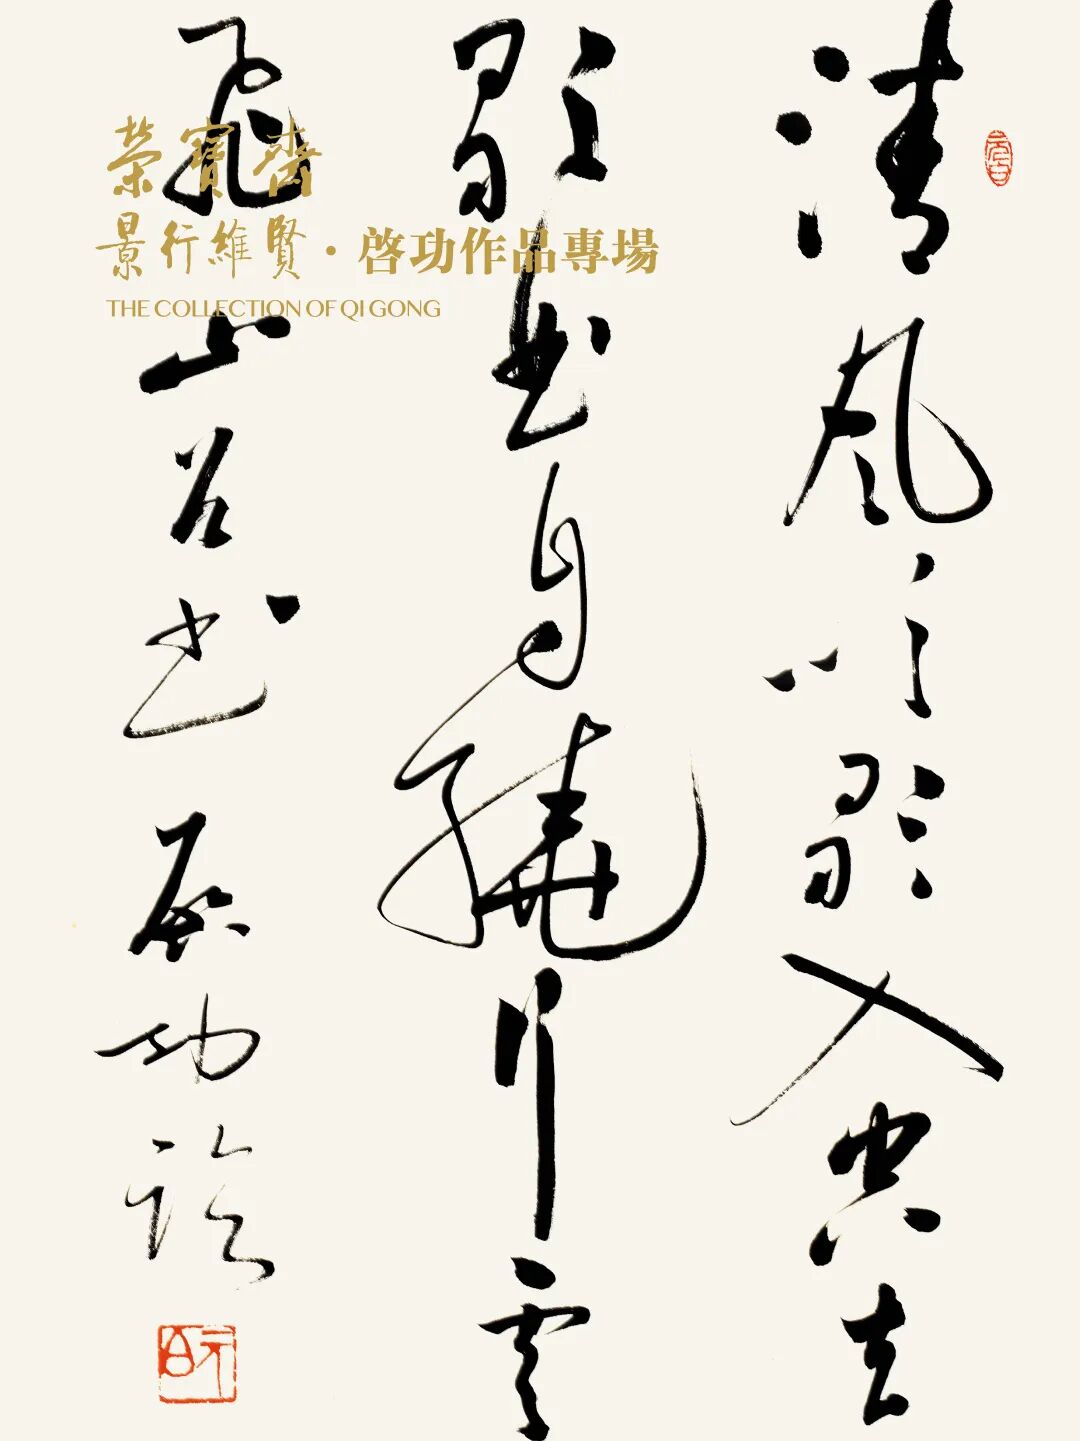 榮寶齋
景行維賢·啓功作品專場
THE COLLECTION OF QI GONG
清風吹歌入空去
歌曲自繞行雲
飛山谷書啟功臨
元白